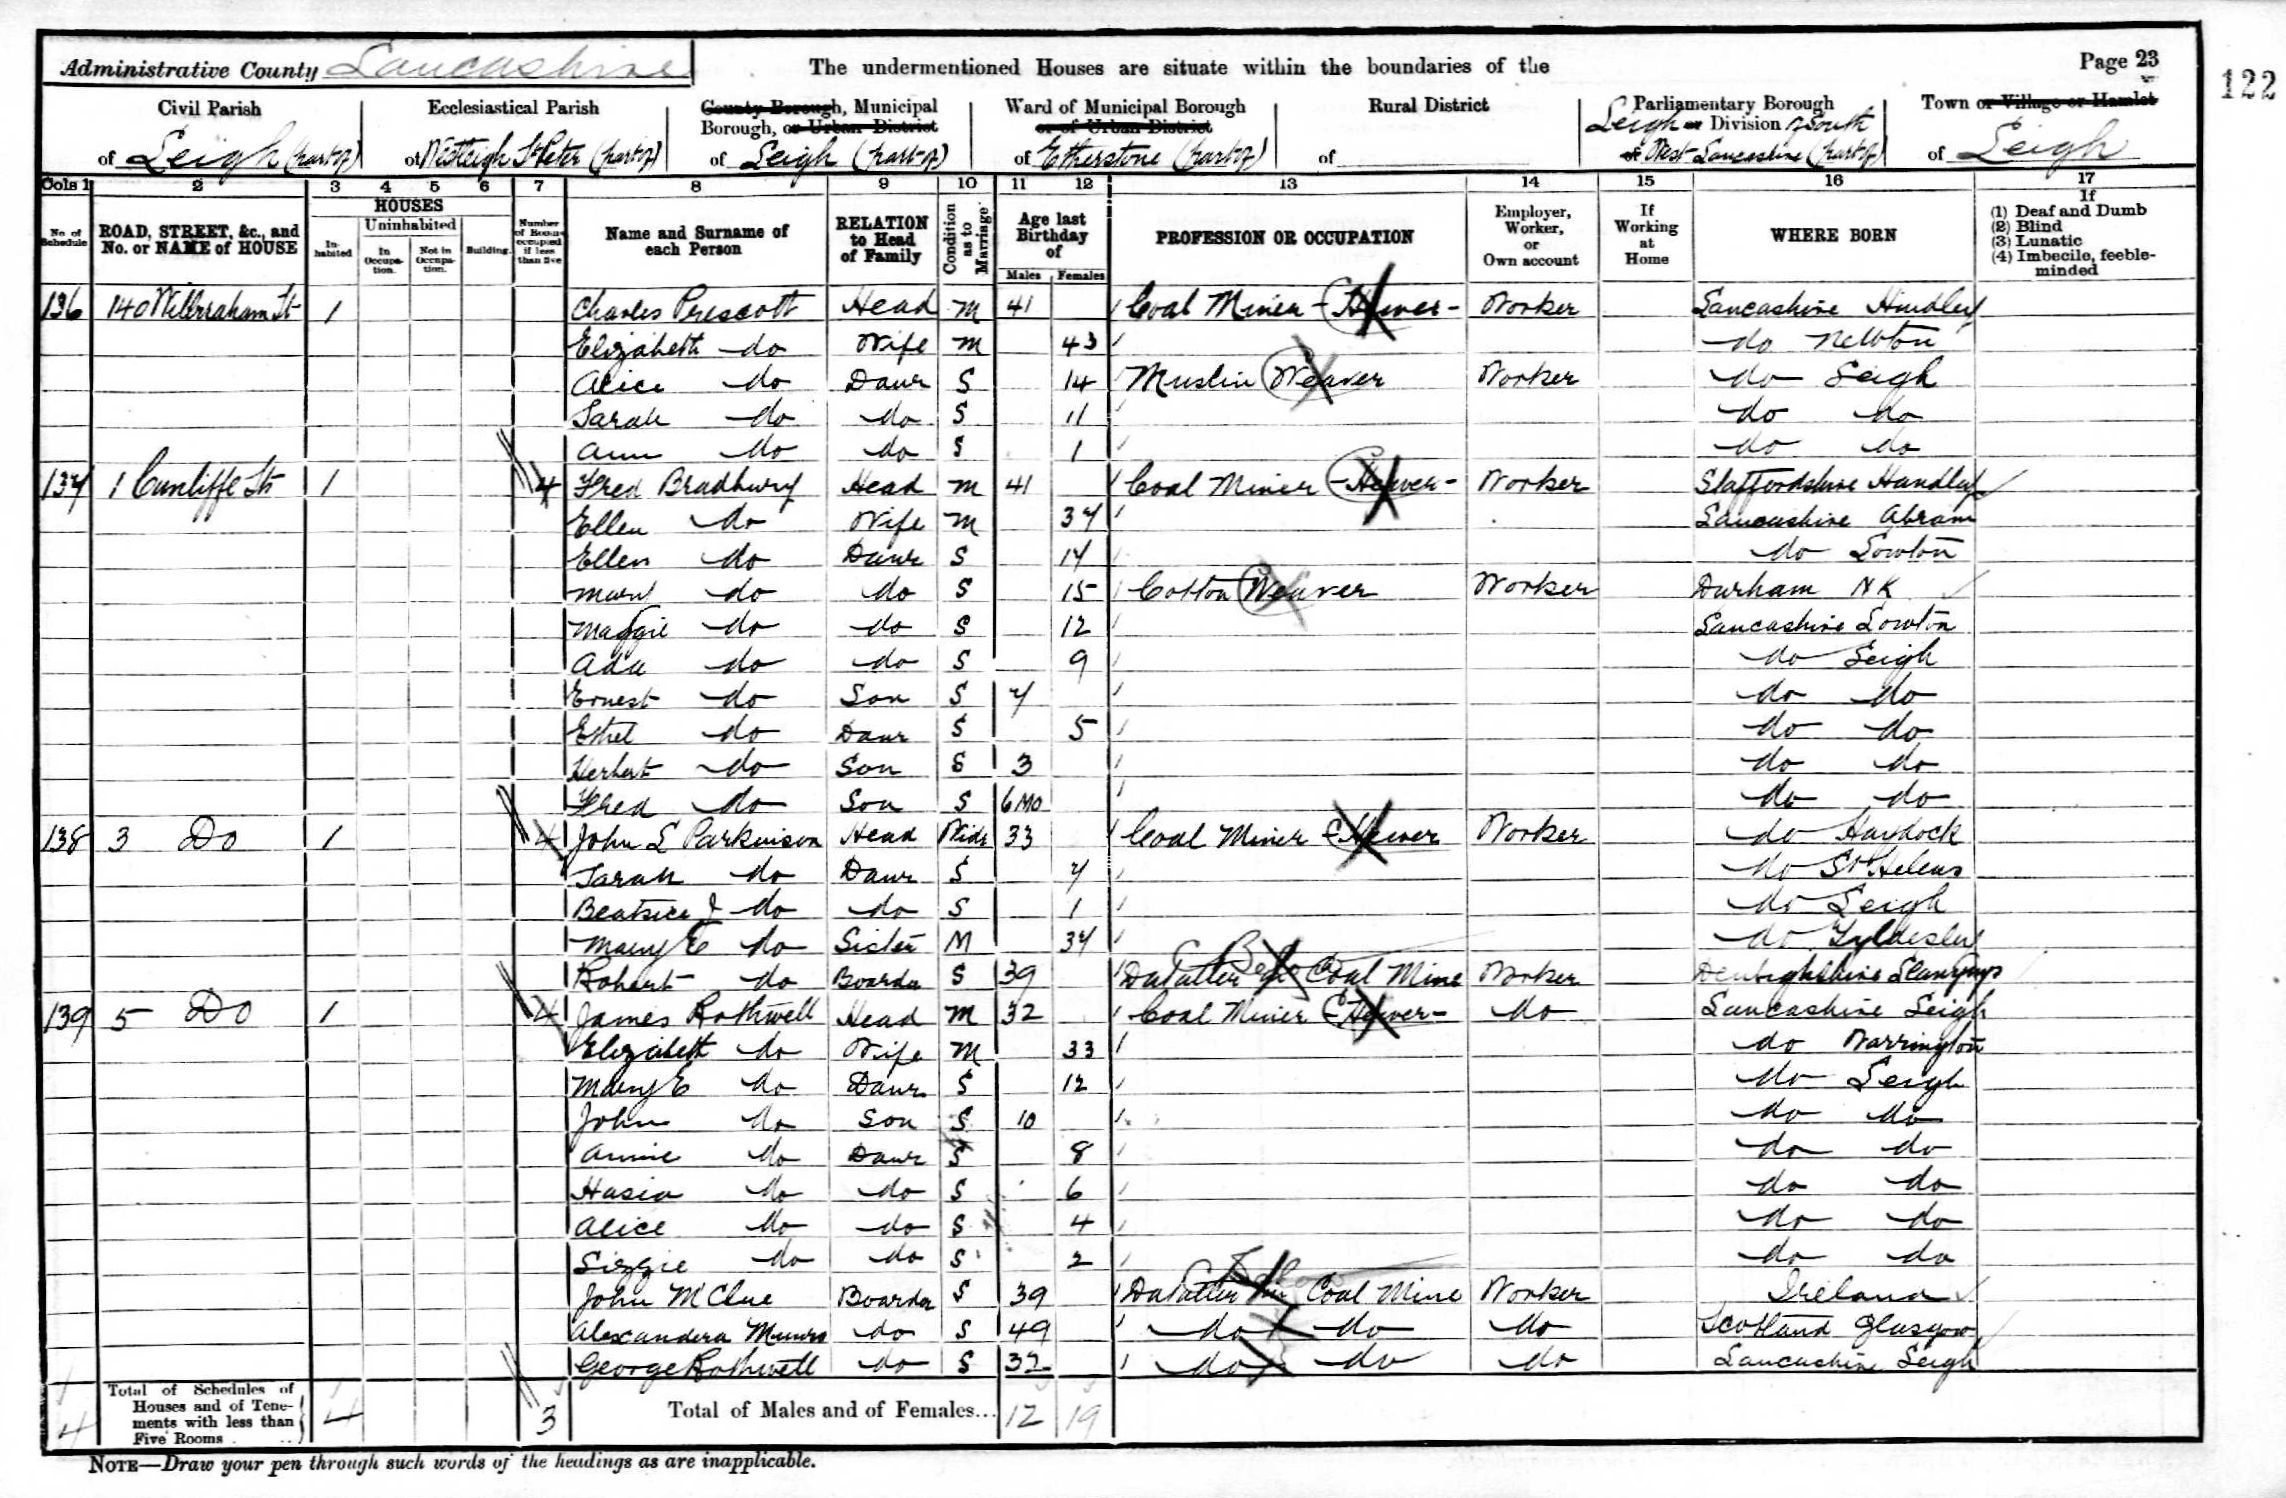 Administrative County Lancashire
The undermentioned Houses are situate within the boundaries of the
Page 23
122
Civil Parish of Leigh (part of)
Ecclesiastical Parish of Westleigh St Peter (part of)
County Borough, Municipal Borough, or Urban District of Leigh (part of)
Ward of Municipal Borough or of Urban District of Etherstone (part of)
Rural District of
Parliamentary Borough or Division of Leigh South West Lancashire (part of)
Town or Village or Hamlet of Leigh
Cols 1 2 3 4 5 6 7 8 9 10 11 12 13 14 15 16 17
No. of Schedule
ROAD, STREET, &c., and No. or NAME of HOUSE
HOUSES
Inhabited
Uninhabited
In Occupation.
Not in Occupation.
Building.
Number of Rooms occupied if less than five
Name and Surname of each Person
RELATION to Head of Family
Condition as to Marriage
Age last Birthday of
Males Females
PROFESSION OR OCCUPATION
Employer, Worker, or Own account
If Working at Home
WHERE BORN
If
(1) Deaf and Dumb
(2) Blind
(3) Lunatic
(4) Imbecile, feeble-minded
136 140 Wilbraham St 1 Charles Prescott Head M 41 Coal Miner - Hewer - Worker Lancashire Hindley
Elizabeth do Wife M 43 do Newton
Alice do Daur S 14 Muslin Weaver Worker do Leigh
Sarah do do S 11 do do
Ann do do S 1 do do
137 1 Cunliffe St 1 4 Fred Bradbury Head M 41 Coal Miner - Hewer - Worker Staffordshire Handley
Ellen do Wife M 37 Lancashire Abram
Ellen do Daur S 17 do Lowton
Mary do do S 15 Cotton Weaver Worker Durham NK
Maggie do do S 12 Lancashire Lowton
Ada do do S 9 do Leigh
Ernest do Son S 7 do do
Ethel do Daur S 5 do do
Herbert do Son S 3 do do
Fred do Son S 6 Mo do do
138 3 Do 1 4 John L Parkinson Head Widr 33 Coal Miner - Hewer Worker do Haydock
Sarah do Daur S 7 do St Helens
Beatrice J do do S 1 do Leigh
Mary E do Sister M 37 do Tyldesley
Robert do Boarder S 39 Dataller Coal Mine Worker Denbighshire
139 5 Do 1 4 James Rothwell Head M 32 Coal Miner - Hewer - do Lancashire Leigh
Elizabeth do Wife M 33 do Warrington
Mary E do Daur S 12 do Leigh
John do Son S 10 do do
Annie do Daur S 8 do do
do do S 6 do do
Alice do do S 4 do do
Lizzie do do S 2 do do
John McClue Boarder S 39 Dataller in Coal Mine Worker Ireland
Alexandera Munro do S 49 do do do Scotland Glasgow
George Rothwell do S 32 do do do Lancashire Leigh
4 Total of Schedules of Houses and of Tenements with less than Five Rooms 4 3 Total of Males and of Females... 12 19
NOTE—Draw your pen through such words of the headings as are inapplicable.